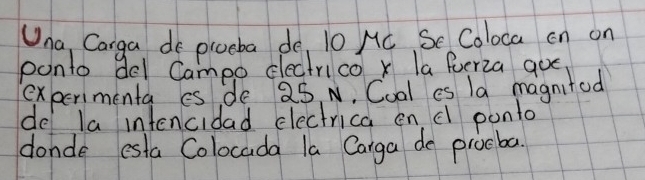 Una, Carga de proeba de, 10 MC Se Coloca en on
ponto del Campo electrico x la foerza qoe,
experimenta es de 25 N. Coal es la magnitod
de la intencidad electrica en el ponto
donde esta Colocada la Carga de proeba.